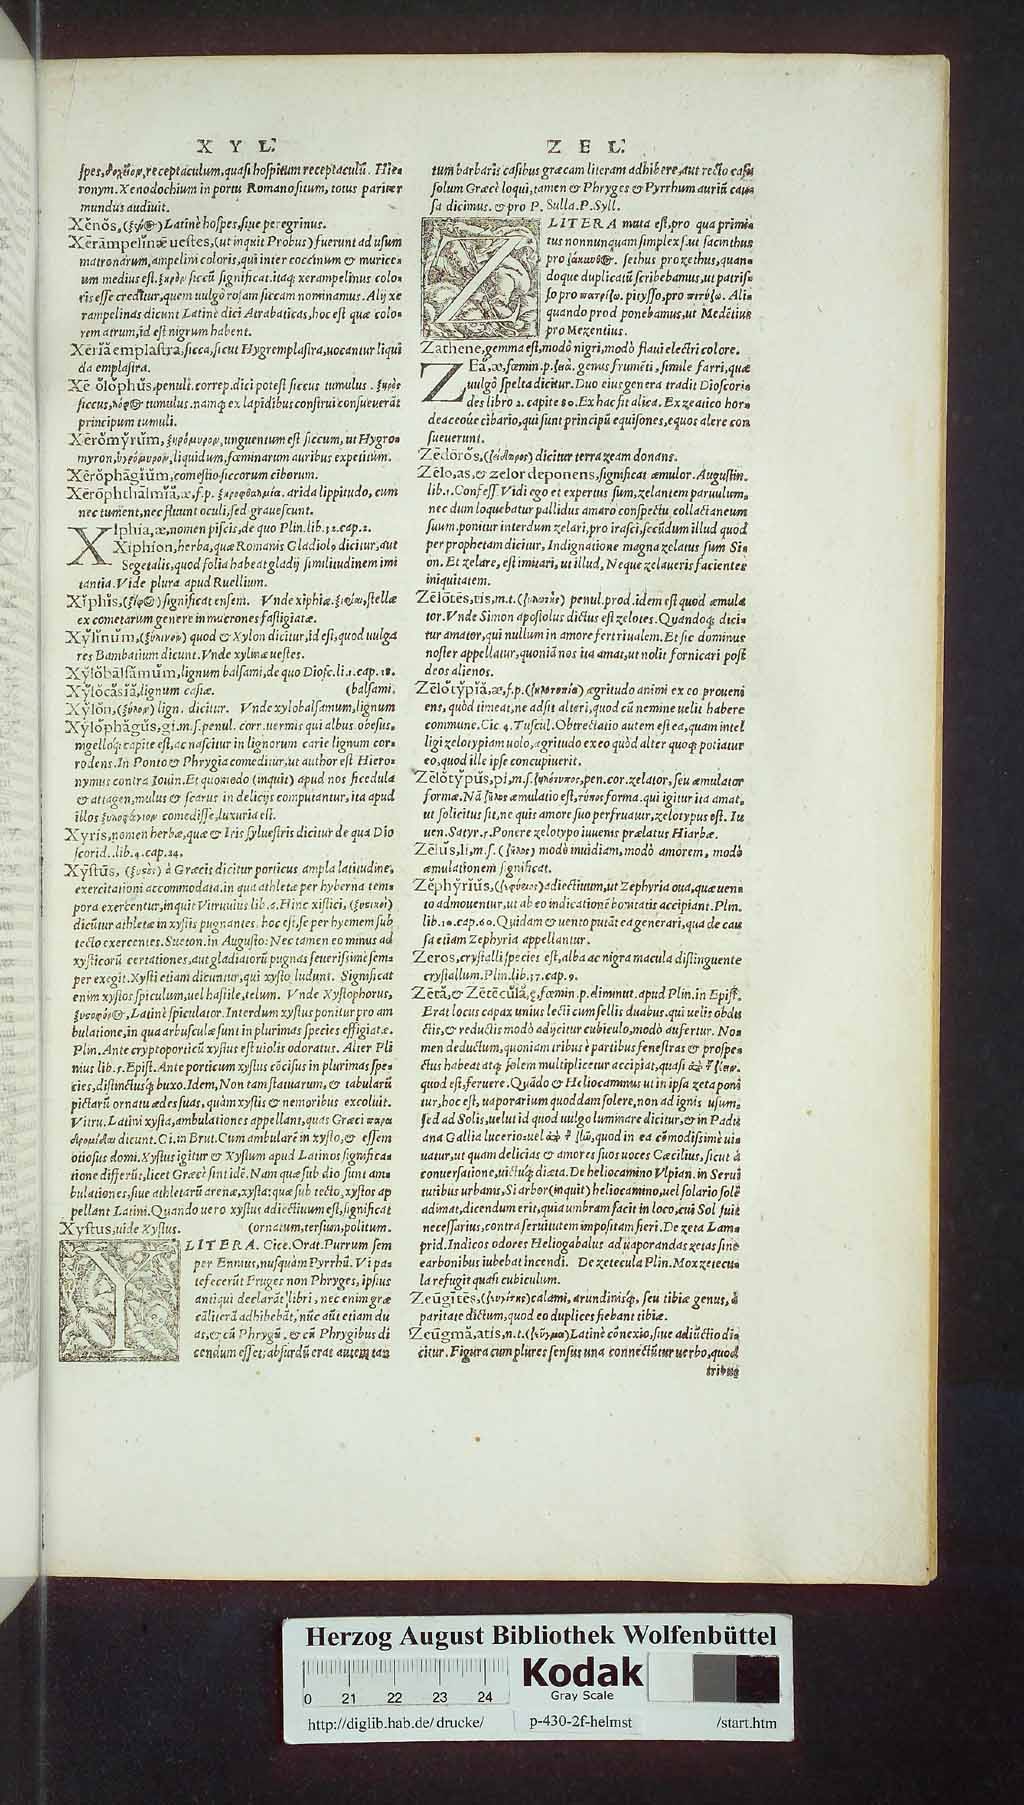 X Y L.
spes, δοχεῖον, receptaculum, quasi hospitum receptaculū. Hie=
ronym. Xenodochium in portu Romano situm, totus pariter
mundus audiuit.
Xĕnŏs, (ξένος) Latinè hospes, siue peregrinus.
Xērāmpelĭnæ uestes, (ut inquit Probus) fuerunt ad usum
matronarum, ampelini coloris, qui inter coccinum & murice=
um medius est. ξηρὸν siccū significat. itaq; xerampelinus colo=
ris esse creditur, quem uulgò rosam siccam nominamus. Alij xe
rampelinas dicunt Latinè dici Atrabaticas, hoc est quæ colo=
rem atrum, id est nigrum habent.
Xērĭă emplastra, sicca, sicut Hygremplastra, uocantur liqui
da emplastra.
Xē ŏlŏphŭs, penult. correp. dici potest siccus tumulus. ξηρὸς
siccus, λόφος tumulus. namq; ex lapidibus construi consueuerāt
principum tumuli.
Xērŏmўrŭm, ξηρόμυρον, unguentum est siccum, ut Hygro=
myron, ὑγρόμυρον, liquidum, fœminarum auribus expetitum.
Xērŏphăgĭŭm, comestio siccorum ciborum.
Xērŏphthālmĭă, æ, f. p. ξηροφθαλμία. arida lippitudo, cum
nec tument, nec fluunt oculi, sed grauescunt.
XIphia, æ, nomen piscis, de quo Plin. lib. 32. cap. 2.
Xiphion, herba, quæ Romanis Gladiolꝰ dicitur, aut
Segetalis, quod folia habeat gladij similitudinem imi
tantia. Vide plura apud Ruellium.
Xĭphĭs, (ξίφος) significat ensem. Vnde xiphiæ. ξιφίαι, stellæ
ex cometarum genere in mucrones fastigiatæ.
Xўlĭnŭm, (ξύλινον) quod & Xylon dicitur, id est, quod uulga
res Bambatium dicunt. Vnde xylinæ uestes.
Xўlŏbālsămŭm, lignum balsami, de quo Diosc. li. 1. cap. 18.
Xўlŏcăsĭă, lignum casiæ. (balsami.
Xўlŏn, (ξύλον) lign. dicitur. Vnde xylobalsamum, lignum
Xўlŏphăgŭs, gi. m. s. penul. corr. uermis qui albus. obesus,
nigelloq́; capite est, ac nascitur in lignorum carie lignum cor=
rodens. In Ponto & Phrygia comeditur, ut author est Hiero=
nymus contra Iouin. Et quomodo (inquit) apud nos ficedula
& attagen, mulus & scarus in delicijs computantur, ita apud
illos ξυλοφάγιον comedisse, luxuria est.
Xyris, nomen herbæ, quæ & Iris syluestris dicitur de qua Dio
scorid. lib. 4. cap. 24.
Xўstŭs, (ξυστὸς) à Græcis dicitur porticus ampla latitudine,
exercitationi accommodata. in qua athletæ per hyberna tem=
pora exercentur, inquit Vitruuius lib. 6. Hinc xistici, (ξυστικοὶ)
dicūtur athletæ in xystis pugnantes. hoc est, se per hyemem sub
tecto exercentes. Sueton. in Augusto: Nec tamen eo minus ad
xysticorū certationes, aut gladiatorū pugnas seuerissimè sem=
per exegit. Xysti etiam dicuntur, qui xysto ludunt. Significat
enim xystos spiculum, uel hastile, telum. Vnde Xystophorus,
ξυστοφόρος, Latinè spiculator. Interdum xystus ponitur pro am
bulatione, in qua arbusculæ sunt in plurimas species effigiatæ.
Plin. Ante cryptoporticū xystus est uiolis odoratus. Alter Pli
nius lib. 5. Epist. Ante porticum xystus cōcisus in plurimas spe=
cies, distinctusq́; buxo. Idem, Non tam statuarum, & tabularū
pictarū ornatu ædes suas, quàm xystis & nemoribus excoluit.
Vitru. Latini xysta, ambulationes appellant, quas Græci παρα
δρομίδας dicunt. Ci. in Brut. Cum ambularē in xysto, & essem
otiosus domi. Xystus igitur & Xystum apud Latinos significa=
tione differūt, licet Græcè sint idē. Nam quæ sub dio sunt am=
bulationes, siue athletarū arenæ, xysta: quæ sub tecto, xystos ap
pellant Latini. Quando uero xystus adiectiuum est, significat
Xystus, uide Xystus. (ornatum, tersum, politum.
Y LITERA. Cice. Orat. Purrum sem
per Ennius, nusquàm Pyrrhū. Vi pa=
tefecerūt Fruges non Phryges, ipsius
antiqui declarāt libri, nec enim græ
cā literā adhibebāt, nūc aūt etiam du
as, & cū Phrygū, & cū Phrygibus di
cendum esset, absurdū erat autem tan
Z E L.
tum barbaris casibus græcam literam adhibere, aut recto casu
solum Græcè loqui, tamen & Phryges & Pyrrhum auriū cau=
sa dicimus. & pro P. Sulla. P. Syll.
Z LITERA muta est, pro qua primi=
tus nonnunquam simplex s. ut sacinthus
pro ζάκυνθος. sethus pro zethus, quan=
doque duplicatū scribebamus, ut patris=
so pro πατρίζω. pitysso, pro πιτύζω. Ali=
quando pro d ponebamus, ut Medētius
pro Mezentius.
Zathene, gemma est, modò nigri, modò flaui electri colore.
ZEă, æ, fœmin. p. ζεά. genus frumēti, simile farri, quæ
uulgò spelta dicitur. Duo eius genera tradit Dioscori=
des libro 2. capite 80. Ex hac fit alica. Ex zea uico hor=
deaceoúe cibario, qui sunt principū equisones, equos alere con
sueuerunt.
Zēdōrŏs, (ζείδωρος) dicitur terra zeam donans.
Zēlo, as, & zelor deponens, significat æmulor. Augustin.
lib. 1. Confess. Vidi ego et expertus sum, zelantem paruulum,
nec dum loquebatur pallidus amaro conspectu collactaneum
suum. ponitur interdum zelari, pro irasci, secūdum illud quod
per prophetam dicitur, Indignatione magna zelatus sum Si=
on. Et zelare, est imitari, ut illud, Neque zelaueris facientes
iniquitatem.
Zēlōtēs, tis, m. t. (ζηλωτὴς) penul. prod. idem est quod æmula
tor. Vnde Simon apostolus dictus est zelotes. Quandoq; dici=
tur amator, qui nullum in amore fert riualem. Et sic dominus
noster appellatur, quoniā nos ita amat, ut nolit fornicari post
deos alienos.
Zēlŏtўpĭă, æ, f. p. (ζηλοτυπία) ægritudo animi ex eo proueni
ens, quòd timeat, ne adsit alteri, quod cū nemine uelit habere
commune. Cic 4. Tuscul. Obtrectatio autem est ea, quam intel
ligi zelotypiam uolo, ægritudo ex eo quòd alter quoq; potiatur
eo, quod ille ipse concupiuerit.
Zēlŏtўpŭs, pi, m. s. ζηλότυπος, pen. cor. zelator, seu æmulator
formæ. Nā ζῆλος æmulatio est, τύπος forma. qui igitur ita amat,
ut solicitus sit, ne quis amore suo perfruatur, zelotypus est. Iu
uen. Satyr. 5. Ponere zelotypo iuuenis prælatus Hiarbæ.
Zēlŭs, li, m. s. (ζῆλος) modò inuidiam, modò amorem, modò
æmulationem significat.
Zĕphўrĭŭs, (ζεφύριος) adiectiuum, ut Zephyria oua, quæ uen
to admouentur, ut ab eo indicationē bonitatis accipiant. Plin.
lib. 10. cap. 60. Quidam & uento putāt ea generari, qua de cau
sa etiam Zephyria appellantur.
Zeros, crystalli species est, alba ac nigra macula distinguente
crystallum. Plin. lib. 37. cap. 9.
Zētă, & Zētēcŭlă, ę, fœmin. p. diminut. apud Plin. in Epist.
Erat locus capax unius lecti cum sellis duabus. qui uelis obdu
ctis, & reductis modò adijcitur cubiculo, modò aufertur. No=
men deductum, quoniam tribus è partibus fenestras & prospe=
ctus habeat atq; solem multipliciter accipiat, quasi
quod est, feruere. Quādo & Heliocaminus ut in ipsa zeta poni
tur, hoc est, uaporarium quoddam solere, non ad ignis usum,
sed ad Solis, uelut id quod uulgo luminare dicitur, & in Padu
ana Gallia lucerio: uel quod in ea cōmodissimè ui=
uatur, ut quam delicias & amores suos uoces Cæcilius, sicut à
conuersatione, uictuq́; diæta. De heliocamino Vlpian. in Serui
tutibus urbanis, Si arbor (inquit) heliocamino, uel solario solē
adimat, dicendum erit, quia umbram facit in loco, cui Sol fuit
necessarius, contra seruitutem impositam fieri. De zeta Lam=
prid. Indicos odores Heliogabalus ad uaporandas zetas sine
carbonibus iubebat incendi. De zetecula Plin. Mox zetecu=
la refugit quasi cubiculum.
Zeūgītēs, (ζευγίτης) calami, arundinisq́;, seu tibiæ genus, à
paritate dictum, quod eo duplices fiebant tibiæ.
Zeūgmă, atis, n. t. (ζεῦγμα) Latinè cōnexio, siue adiūctio di=
citur. Figura cum plures sensus una connectūtur uerbo, quod
tribus
Herzog August Bibliothek Wolfenbüttel
Kodak
Gray Scale
0 21 22 23 24
http://diglib.hab.de/drucke/ p-430-2f-helmst /start.htm